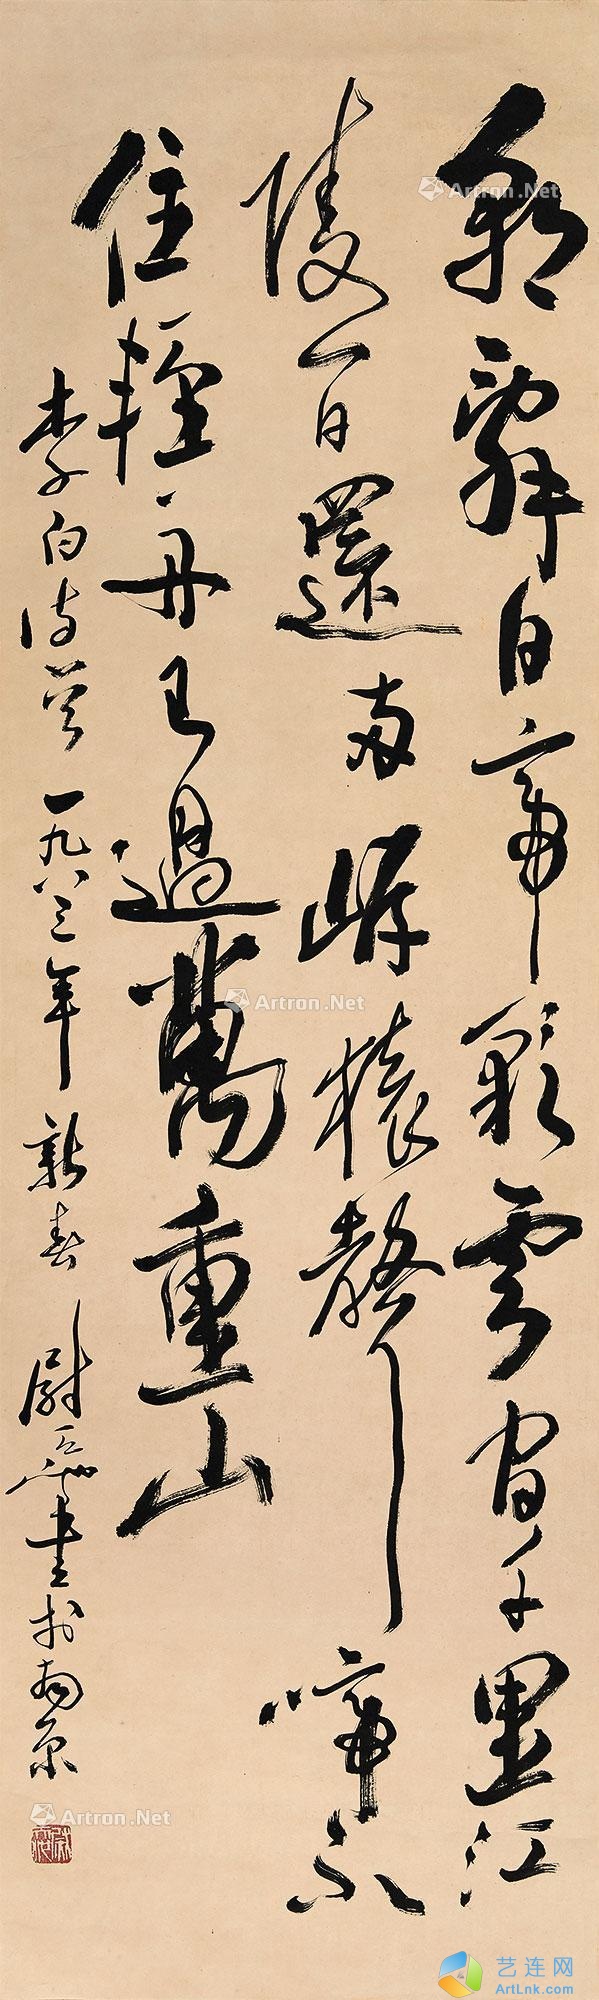 朝辭白帝彩雲間千里江
陵一日還兩岸猿聲啼不
住輕舟已過萬重山
李白诗 一九八三年 新春 尉天池書於南京
Artron.Net
Artron.Net
Artron.Net
Artron.Net
艺连网
ArtLnk.com